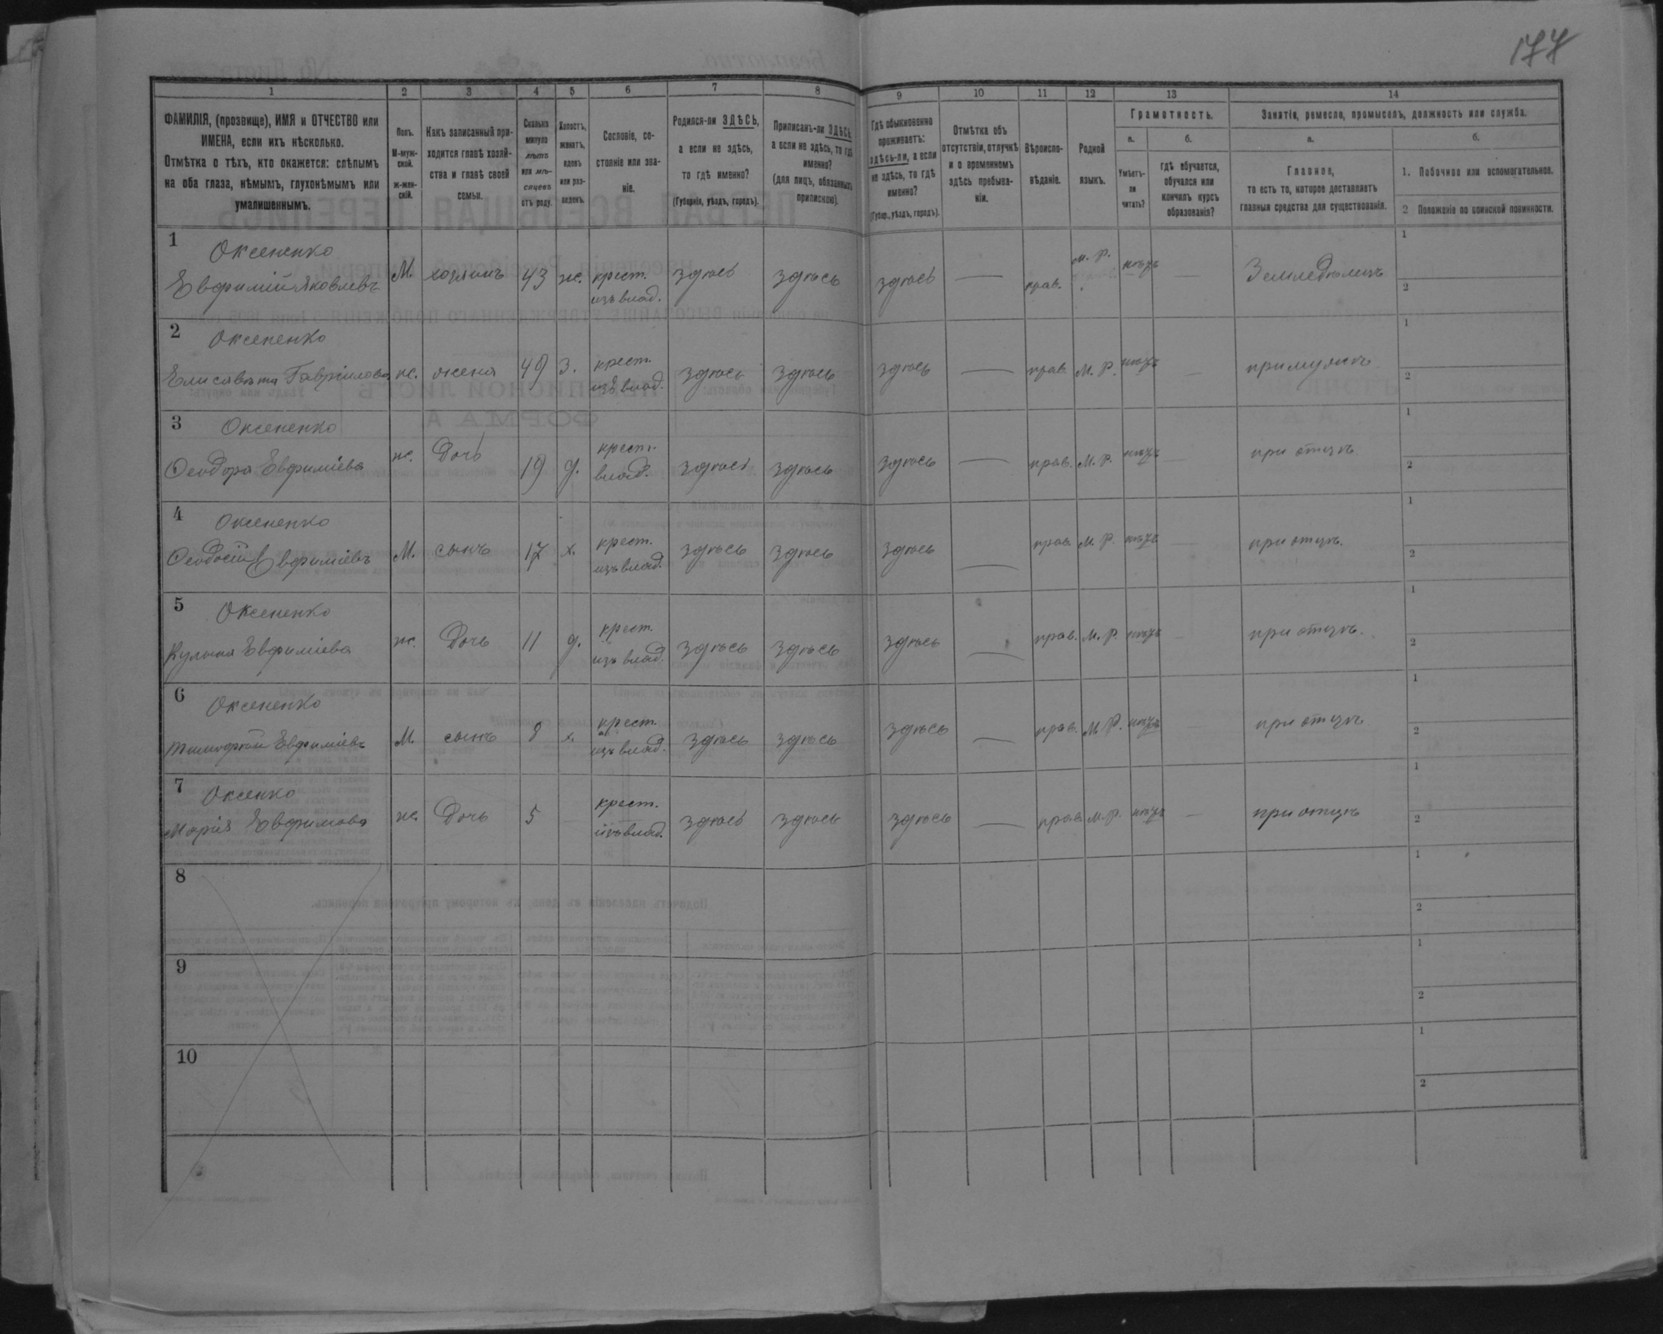 177
1
2
3
4
5
6
7
8
9
10
11
12
13
14
ФАМИЛІЯ, (прозвище), ИМЯ и ОТЧЕСТВО или
ИМЕНА, если ихъ нѣсколько.
Отмѣтка о тѣхъ, кто окажется: слѣпымъ
на оба глаза, нѣмымъ, глухонѣмымъ или
умалишеннымъ.
Полъ.
М-муж-
ской.
Ж-жен-
скій.
Какъ записанный при-
ходится главѣ хозяй-
ства и главѣ своей
семьи.
Сколько
минуло
лѣтъ
или мѣ-
сяцевъ
отъ роду.
Холостъ,
женатъ,
вдовъ
или раз-
веденъ.
Сословіе, со-
стояніе или зва-
ніе.
Родился-ли ЗДѢСЬ,
а если не здѣсь,
то гдѣ именно?
(Губернія, уѣздъ, городъ).
Приписанъ-ли ЗДѢСЬ,
а если не здѣсь, то гдѣ
именно?
(для лицъ, обязанныхъ
припискою).
Гдѣ обыкновенно
проживаетъ:
здѣсь-ли, а если
не здѣсь, то гдѣ
именно?
(Губер., уѣздъ, городъ).
Отмѣтка объ
отсутствіи, отлучкѣ
и о временномъ
здѣсь пребыва-
ніи.
Вѣроиспо-
вѣданіе.
Родной
языкъ.
Грамотность.
а.
б.
Умѣетъ-
ли
читать?
гдѣ обучается,
обучался или
кончилъ курсъ
образованія?
Занятіе, ремесло, промыселъ, должность или служба.
а.
б.
Главное,
то есть то, которое доставляетъ
главныя средства для существованія.
1. Побочное или вспомогательное.
2 Положеніе по воинской повинности.
1 Оксененко
Евфимій Яковлевъ М хозяинъ 43 ж. крест. изъ влад. здѣсь здѣсь здѣсь — прав. м. р. нѣтъ — Земледѣлецъ 1 2
2 Оксененко
Елисавета Гавріилова ж. жена 49 з. крест. изъ влад. здѣсь здѣсь здѣсь — прав. М. Р. нѣтъ — при мужѣ 1 2
3 Оксененко
Ѳеодора Евфиміева ж. Дочь 19 д. крест. влад. здѣсь здѣсь здѣсь — прав. М. Р. нѣтъ — при отцѣ 1 2
4 Оксененко
Ѳеодосій Евфиміевъ М. сынъ 17 х. крест. изъ влад. здѣсь здѣсь здѣсь — прав. М. Р. нѣтъ — при отцѣ. 1 2
5 Оксененко
Евфиміева ж. Дочь 11 д. крест. изъ влад. здѣсь здѣсь здѣсь — прав. М. Р. нѣтъ — при отцѣ. 1 2
6 Оксененко
Тимофей Евфиміевъ М сынъ 8 х. крест. изъ влад. здѣсь здѣсь здѣсь — прав. М. Р. нѣтъ — при отцѣ 1 2
7 Оксенко
Марія Евфимова ж. Дочь 5 крест. изъ влад. здѣсь здѣсь здѣсь — прав. М. Р. нѣтъ — при отцѣ 1 2
8 1 2
9 1 2
10 1 2